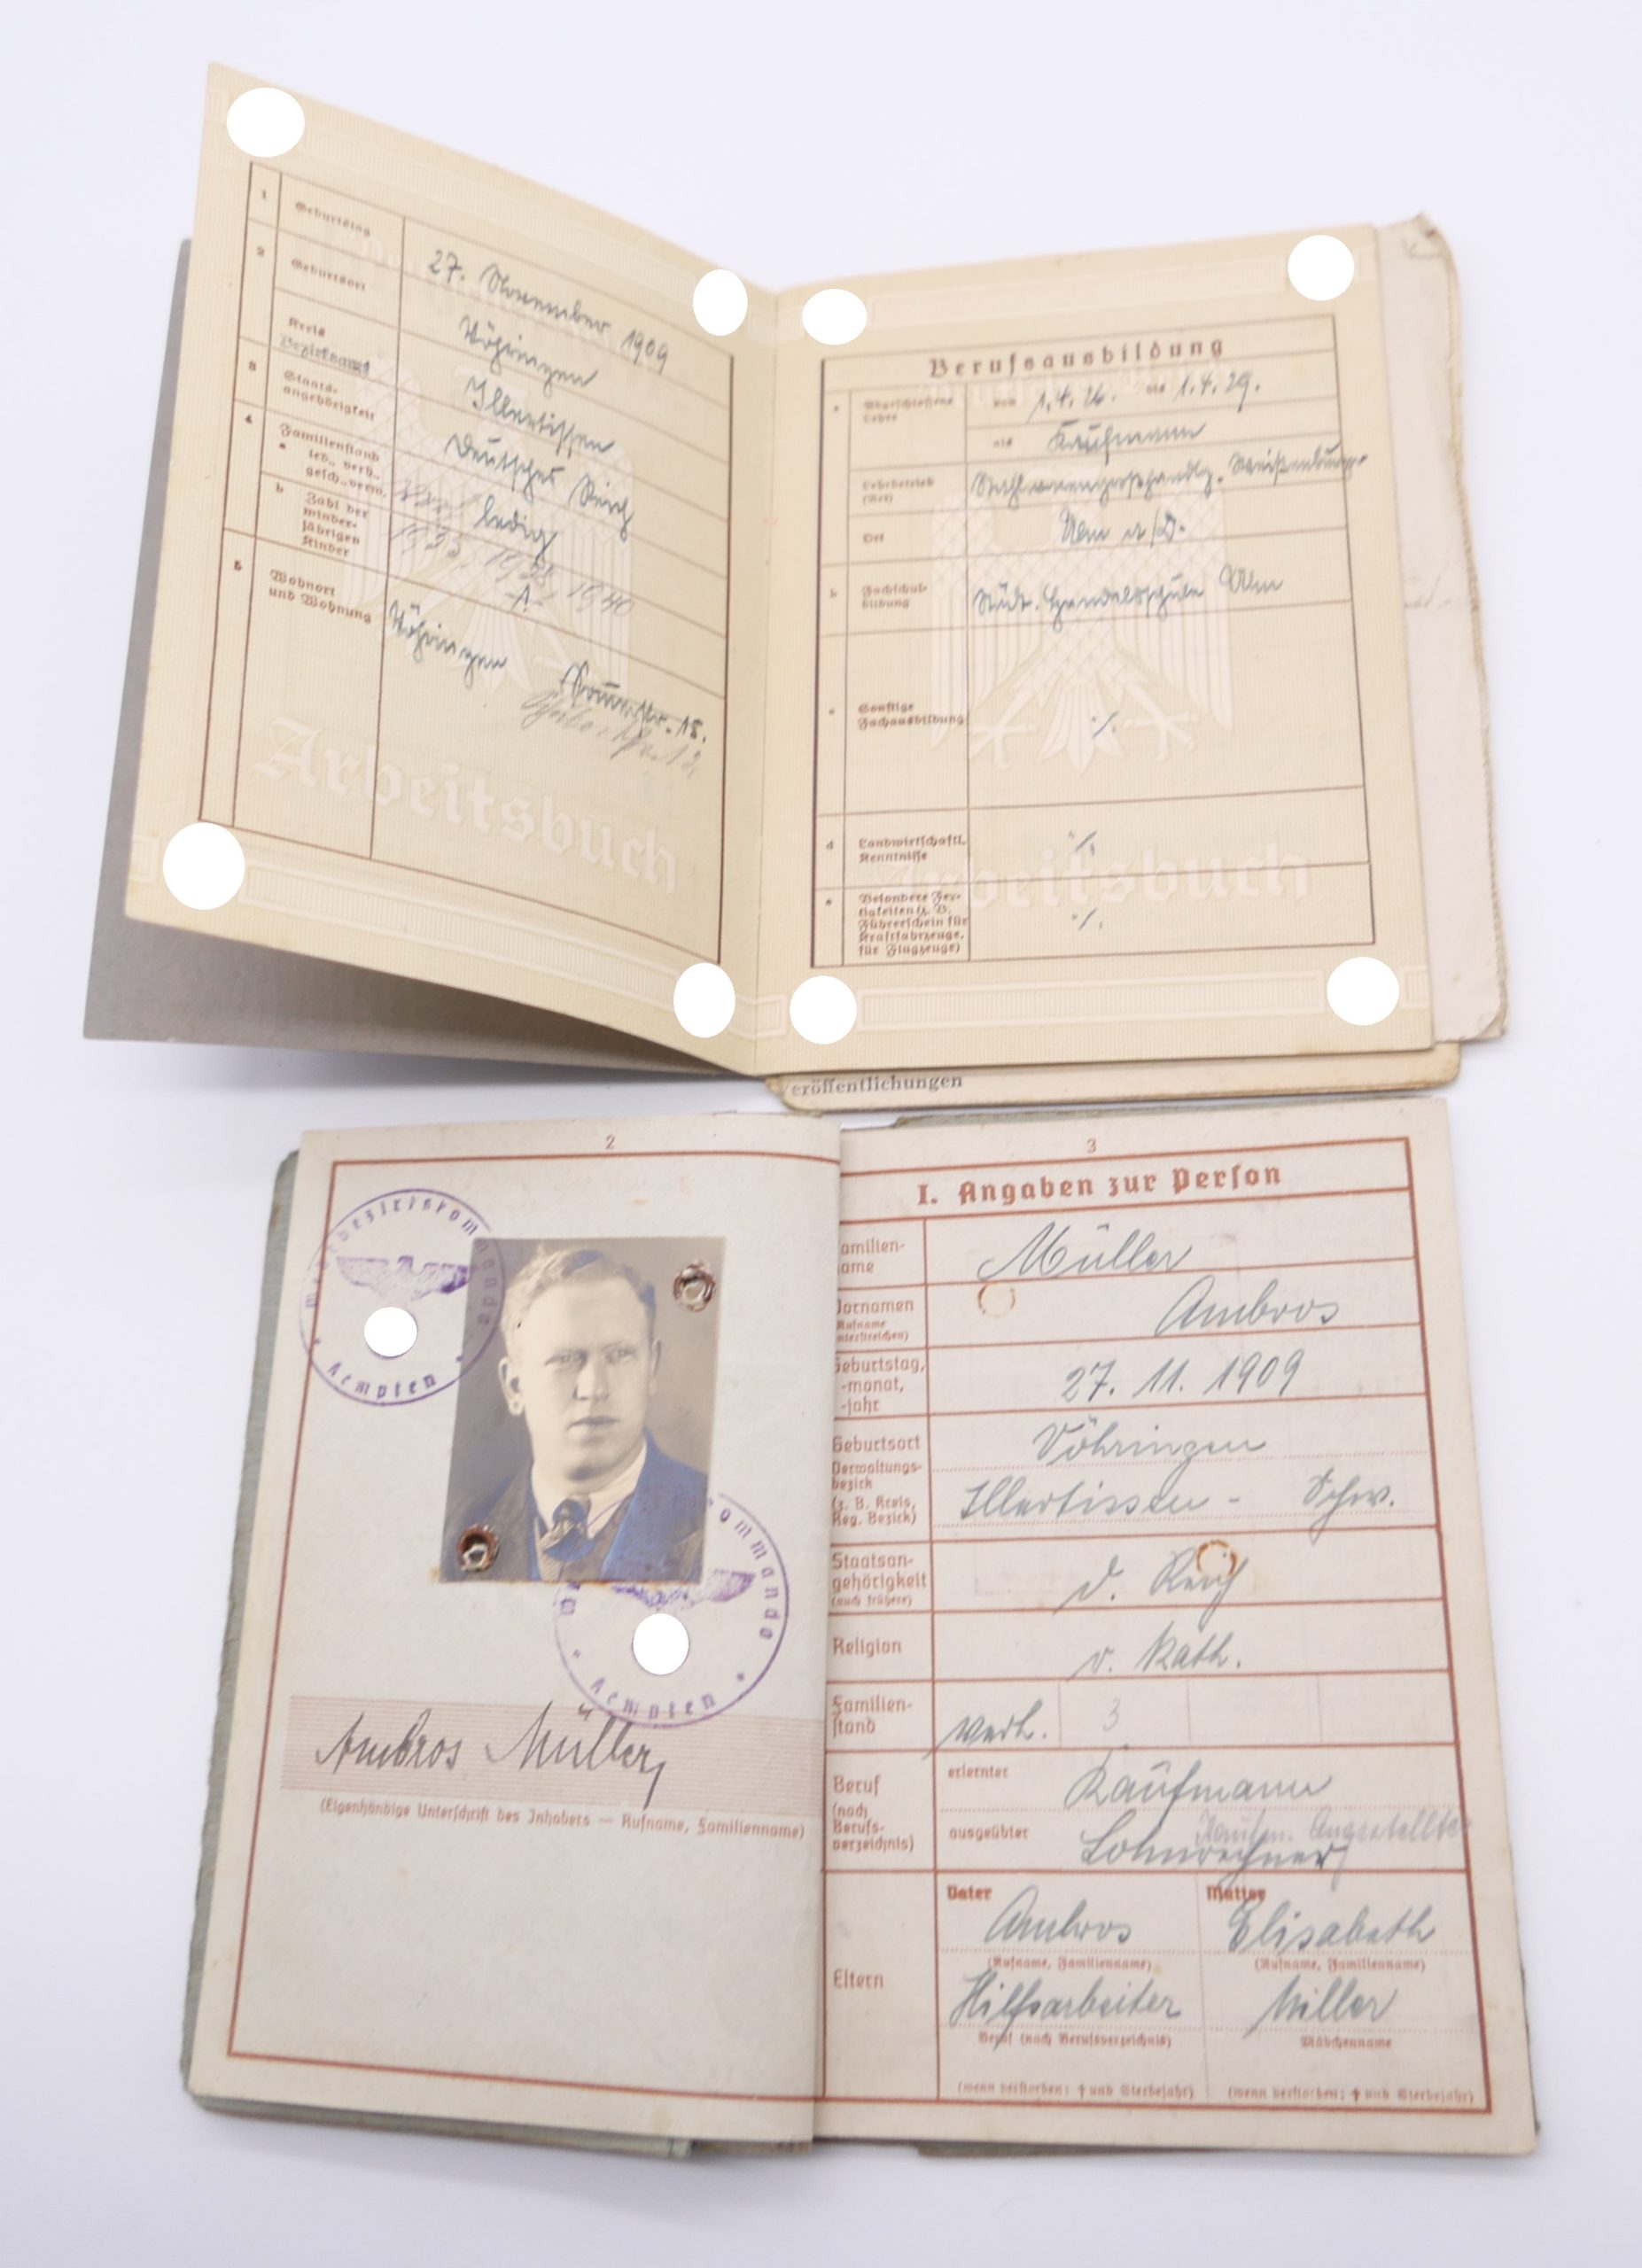 1 Geburtstag 27. November 1909
2 Geburtsort Vöhringen
Kreis
Bezirksamt Illertissen
3 Staats-
angehörigkeit Deutsches Reich
4 a Familienstand
led., verh.,
gesch., verw. ledig
b Zahl der
minder-
jährigen
Kinder
1933, 1938, 1940
5 Wohnort
und Wohnung
Vöhringen
Arbeitsbuch
Berufsausbildung
a Abgeschlossene
Lehre
von 1.4.26. bis 1.4.29.
als Kaufmann
Lehrbetrieb
(Art)
Ort Ulm a/D.
b Fachschul-
bildung
Städt. Handelsschule Ulm
c Sonstige
Fachausbildung
./.
d Landwirtschaftl.
Kenntnisse
./.
e Besondere Fer-
tigkeiten (z. B.
Führerschein für
Kraftfahrzeuge,
für Flugzeuge)
./.
Arbeitsbuch
eröffentlichungen
2
ezirkskommando
Kempten
ommando
Kempten
Ambros Müller
(Eigenhändige Unterschrift des Inhabers — Rufname, Familienname)
3
I. Angaben zur Person
amilien-
ame
Müller
Vornamen
(Rufname
unterstreichen)
Ambros
Geburtstag,
-monat,
-jahr
27. 11. 1909
Geburtsort
Vöhringen
Verwaltungs-
bezirk
(z. B. Kreis,
Reg. Bezirk)
Illertissen - Schw.
Staatsan-
gehörigkeit
(auch frühere)
d. Reich
Religion
r. kath.
Familien-
stand
verh. 3
Beruf
(nach
Berufs-
verzeichnis)
erlernter Kaufmann
ausgeübter Lohnrechner
Kaufm. Angestellter
Eltern
Vater Mutter
Ambros Elisabeth
(Rufname, Familienname) (Rufname, Familienname)
Hilfsarbeiter Miller
Beruf (nach Berufsverzeichnis) Mädchenname
(wenn verstorben: † und Sterbejahr) (wenn verstorben: † und Sterbejahr)